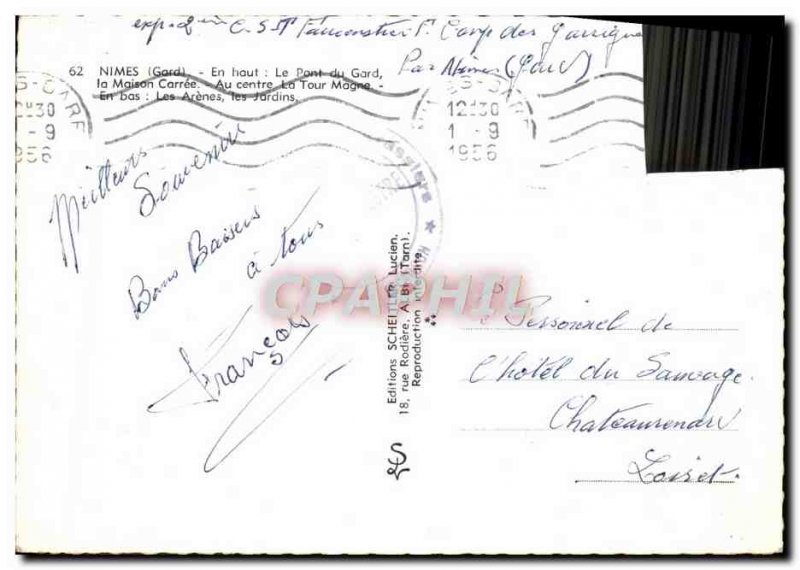 Camp des Garrigues
Par Nîmes (Gard)
62 NIMES (Gard) - En haut : Le Pont du Gard,
la Maison Carrée. - Au centre La Tour Magne. -
En bas : Les Arènes, les Jardins.
12H30
1 - 9
1956
12H30
1 - 9
1956
Meilleurs
Souvenirs
Bons Baisers
à tous
François
Editions SCHEITLER Lucien.
18, rue Rodière, ALBI (Tarn).
Reproduction interdite
CPAPHIL
Personnel de
l'hôtel du Sauvage
Chateaurenard
Loiret